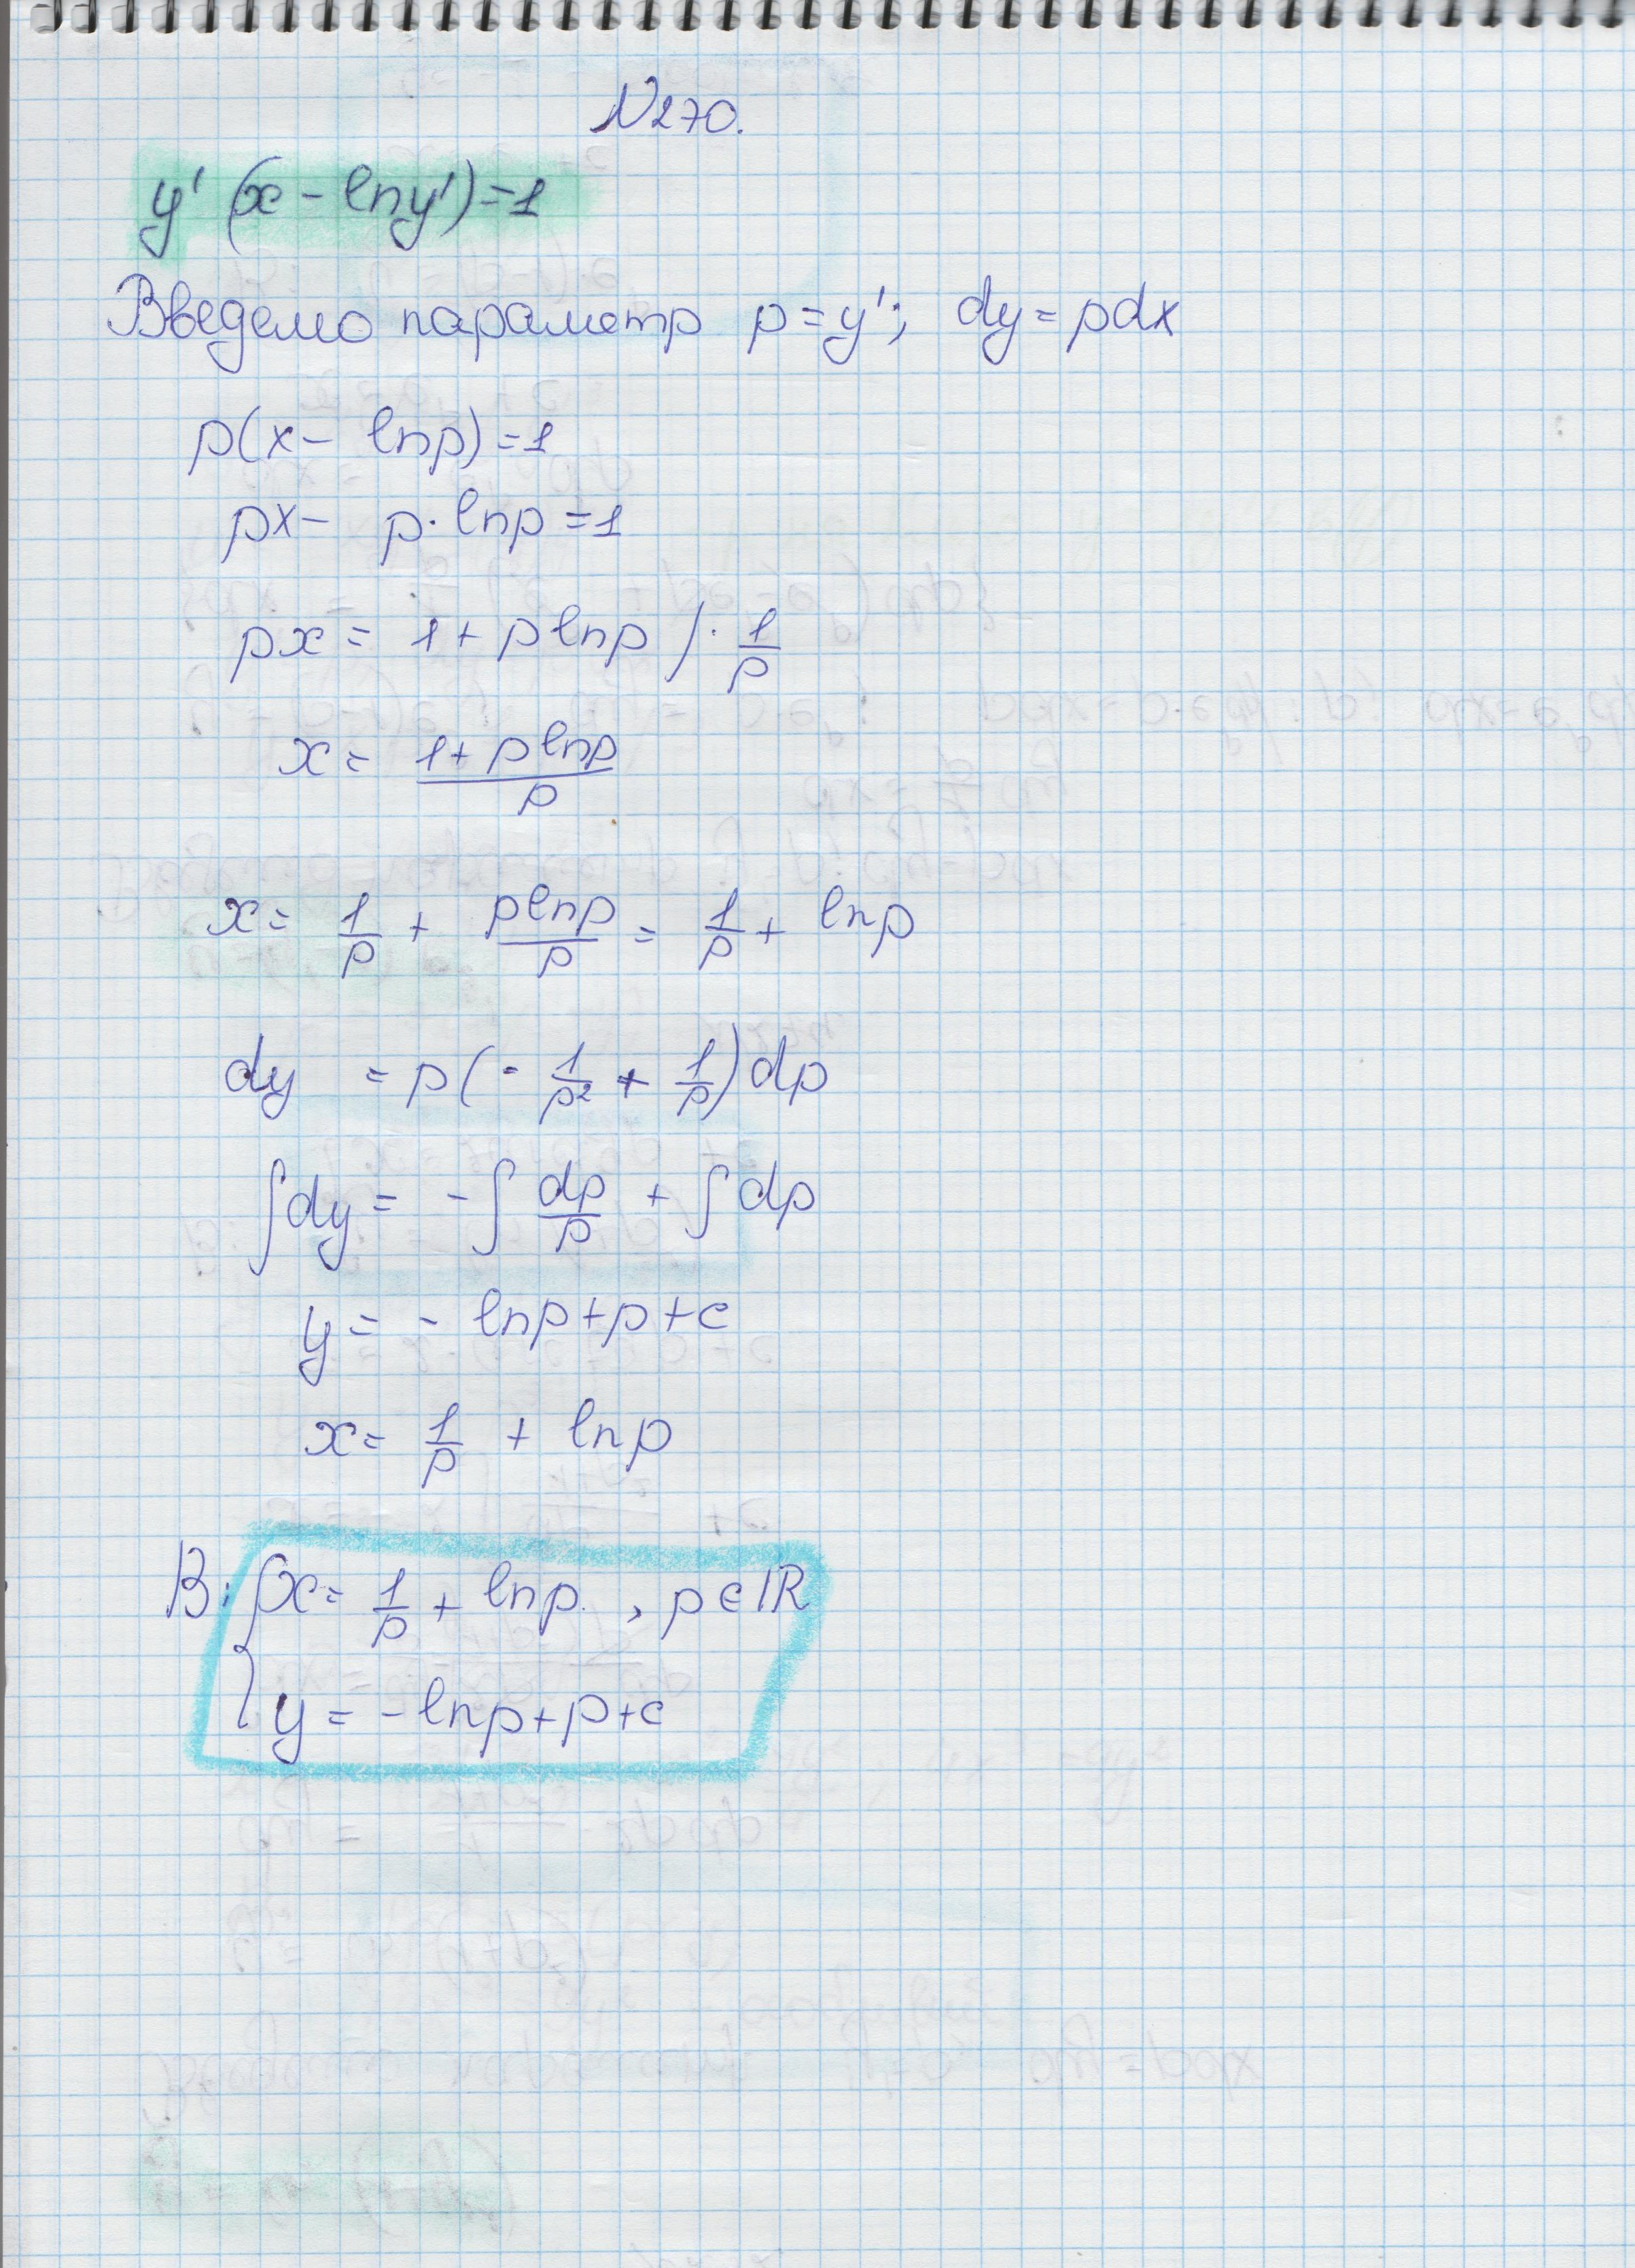 N270.
y' (x - lny') = 1
Введемо параметр p = y'; dy = pdx
p(x - lnp) = 1
px - p · lnp = 1
px = 1 + plnp / · 1/p
x = (1 + plnp)/p
x = 1/p + plnp/p = 1/p + lnp
dy = p(- 1/p² + 1/p)dp
∫dy = - ∫ dp/p + ∫ dp
y = - lnp + p + c
x = 1/p + lnp
В: { x = 1/p + lnp , p ∈ ℝ
y = - lnp + p + c